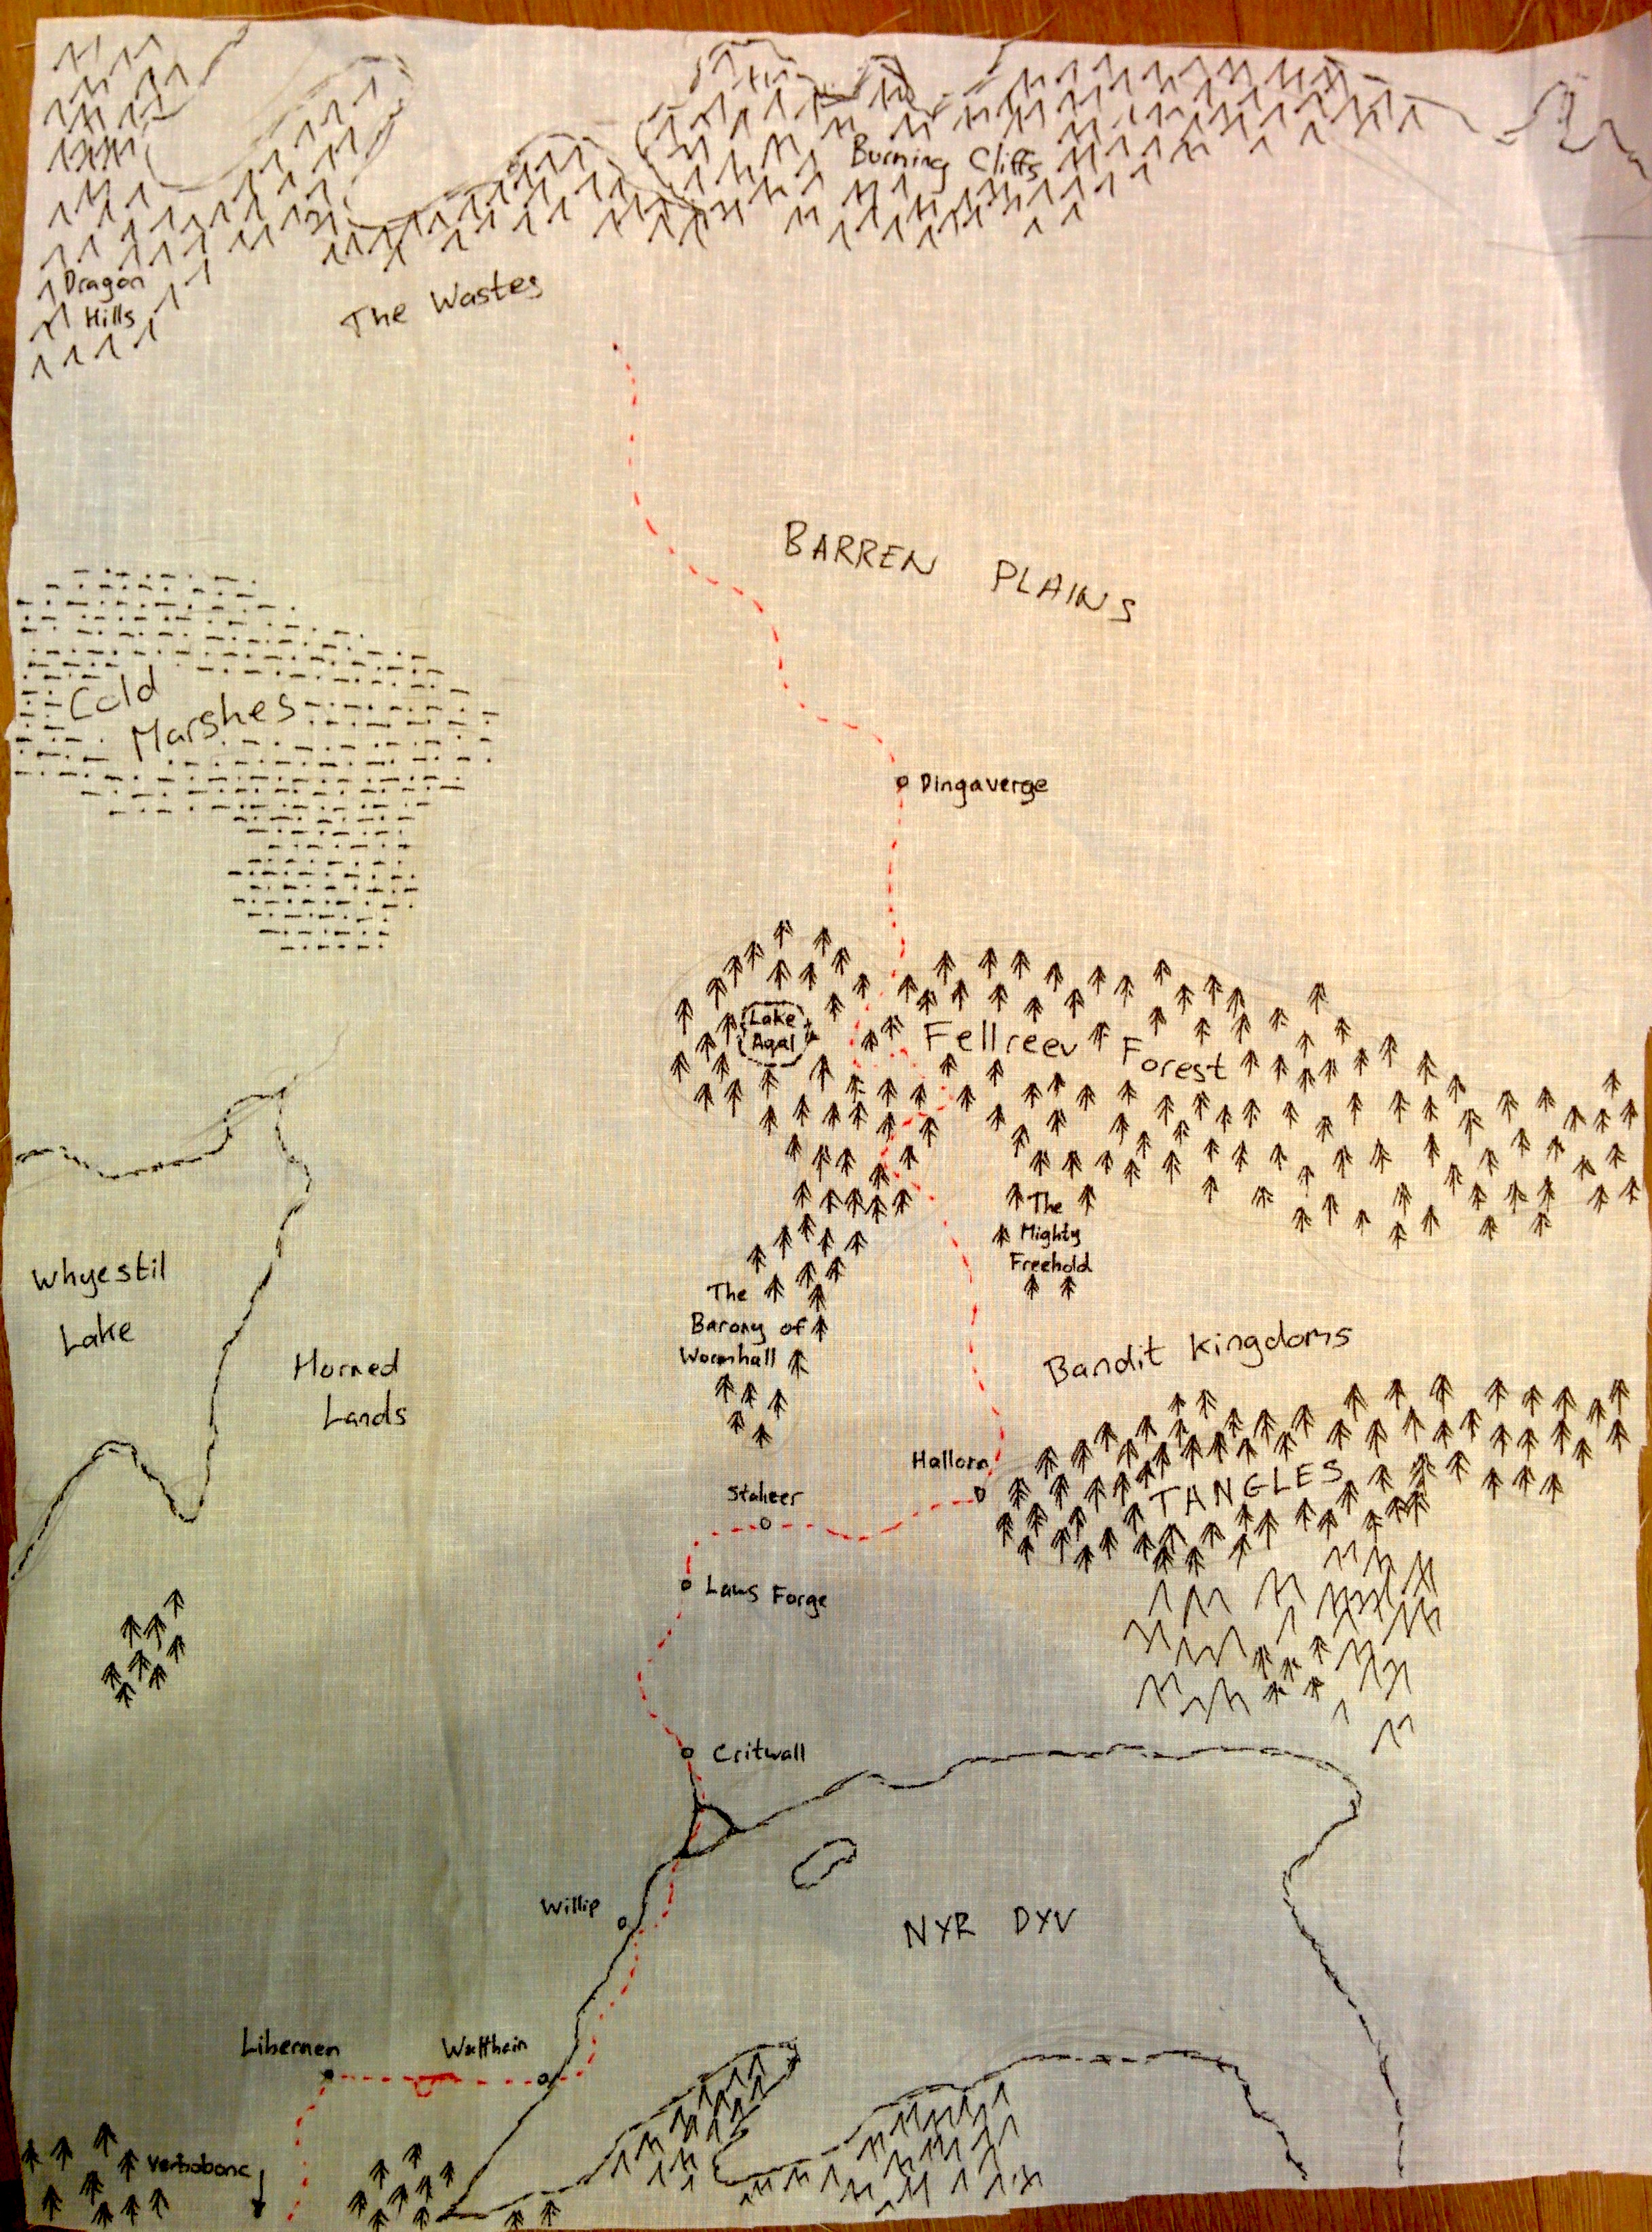 Burning Cliffs
Dragon
Hills
The Wastes
BARREN PLAINS
Cold
Marshes
Dingaverge
Lake
Aqal
Fellreev Forest
The
Mighty
Freehold
Whyestil
Lake
The
Barony of
Wormhall
Horned
Lands
Bandit Kingdoms
Hallorn
TANGLES
Staheer
Laws Forge
Critwall
Willip
NYR DYV
Libernen
Walthain
Verbobonc